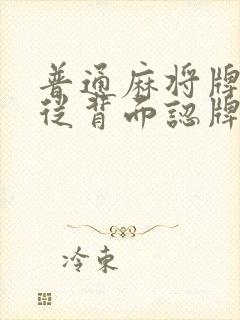 普通麻将牌
从背面認牌
冷束